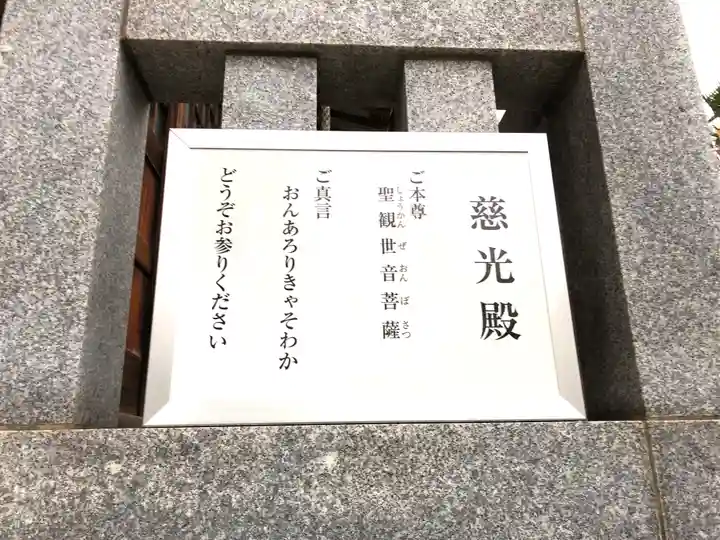 慈光殿
ご本尊
聖観世音菩薩
しょうかんぜおんぼさつ
ご真言
おんあろりきゃそわか
どうぞお参りください